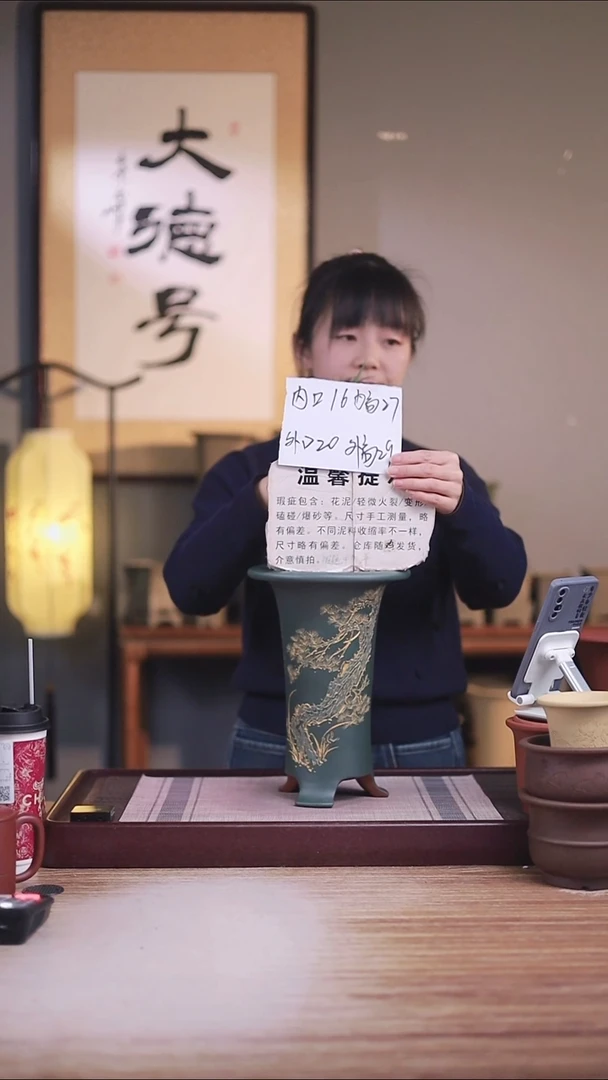 大德号
内口16内高27
外口20外高29
温馨提
瑕疵包含：花泥/轻微火裂/变形
磕碰/爆砂等。尺寸手工测量，略
有偏差。不同泥料收缩率不一样，
尺寸略有偏差。仓库随机发货，
介意慎拍。